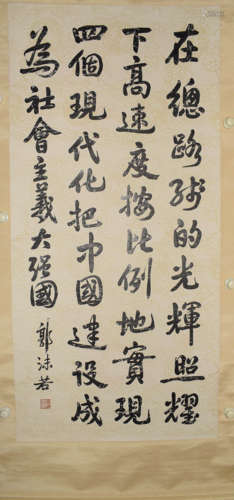 在總路線的光輝照耀
下高速度按比例地實現
四個現代化把中國建設成
為社會主義大强國
郭沫若